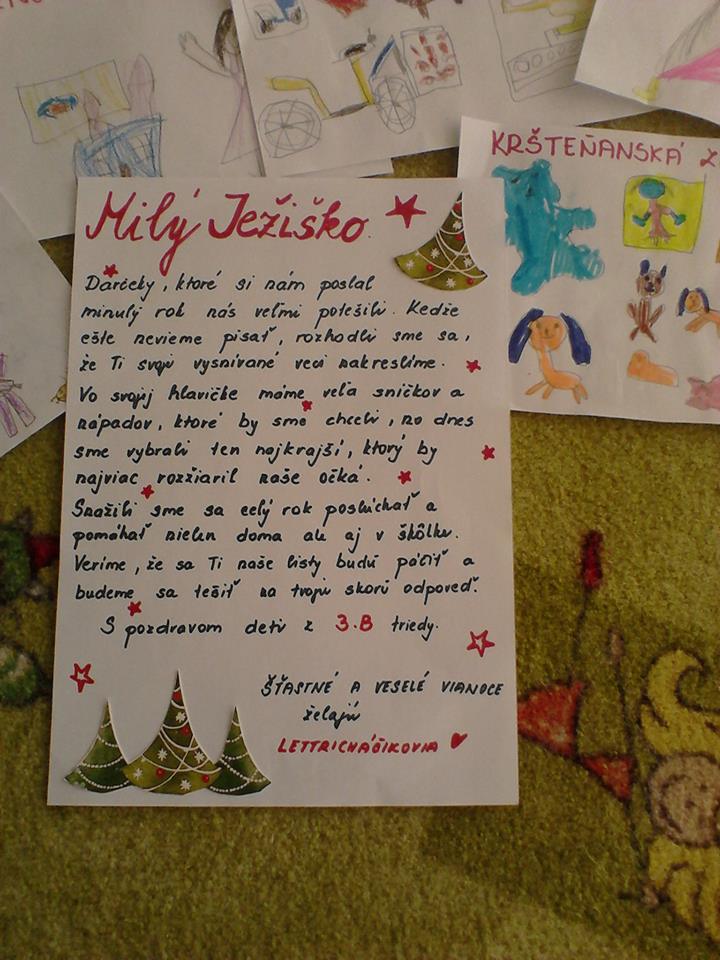 KRŠTEŇANSKÁ Z
Milý Ježiško
Darčeky, ktoré si nám poslal
minulý rok nás veľmi potešili. Kedže
ešte nevieme písať, rozhodli sme sa,
že Ti svoje vysnívané veci nakreslíme.
Vo svojej hlavičke máme veľa sníčkov a
nápadov, ktoré by sme chceli, no dnes
sme vybrali ten najkrajší, ktorý by
najviac rozžiaril naše očká.
Snažili sme sa celý rok poslúchať a
pomáhať nielen doma ale aj v škôlke.
Veríme, že sa Ti naše listy budú páčiť a
budeme sa tešiť na tvoju skorú odpoveď.
S pozdravom deti z 3.B triedy.
ŠŤASTNÉ A VESELÉ VIANOCE
želajú
LETTRICHÁČIKOVIA